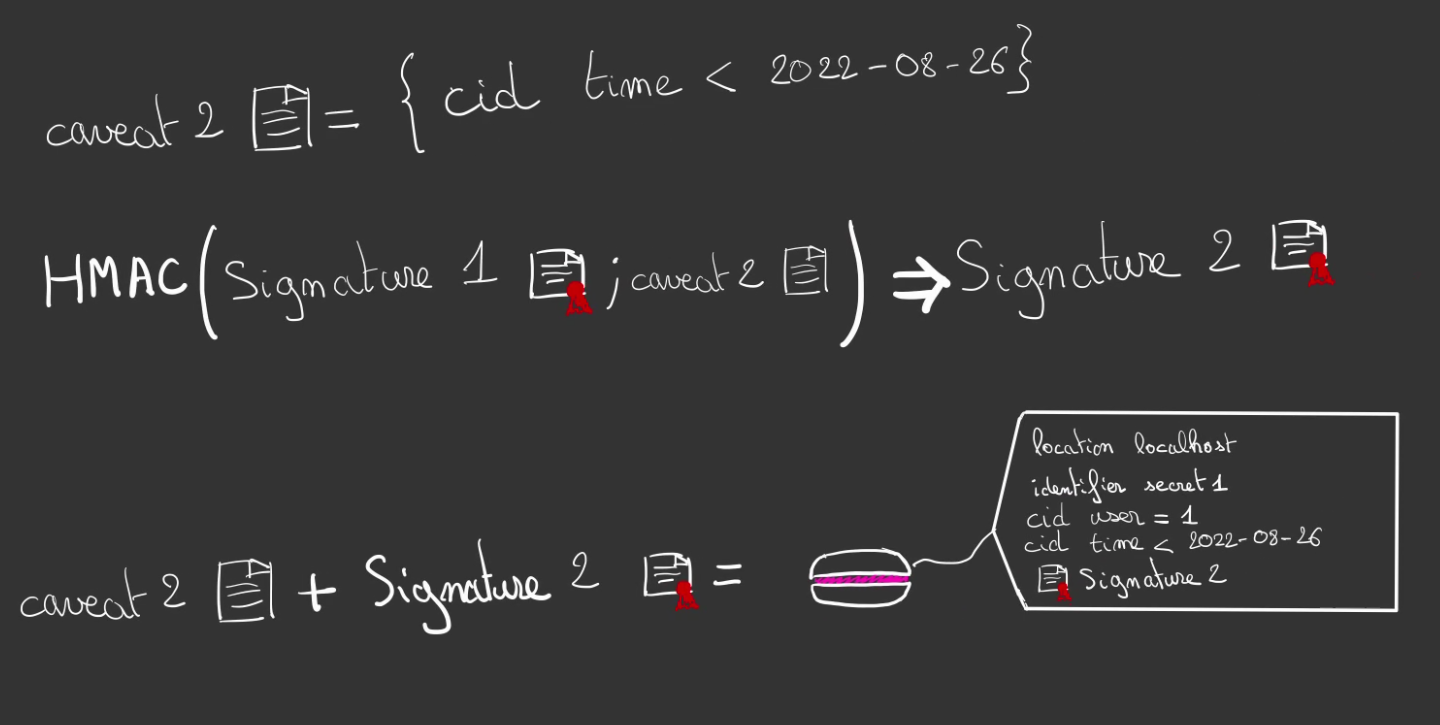 caveat 2 = { cid time < 2022-08-26}
HMAC(Signature 1 ; caveat 2) ⇒ Signature 2
location localhost
identifier secret 1
cid user = 1
cid time < 2022-08-26
Signature 2
caveat 2 + Signature 2 =